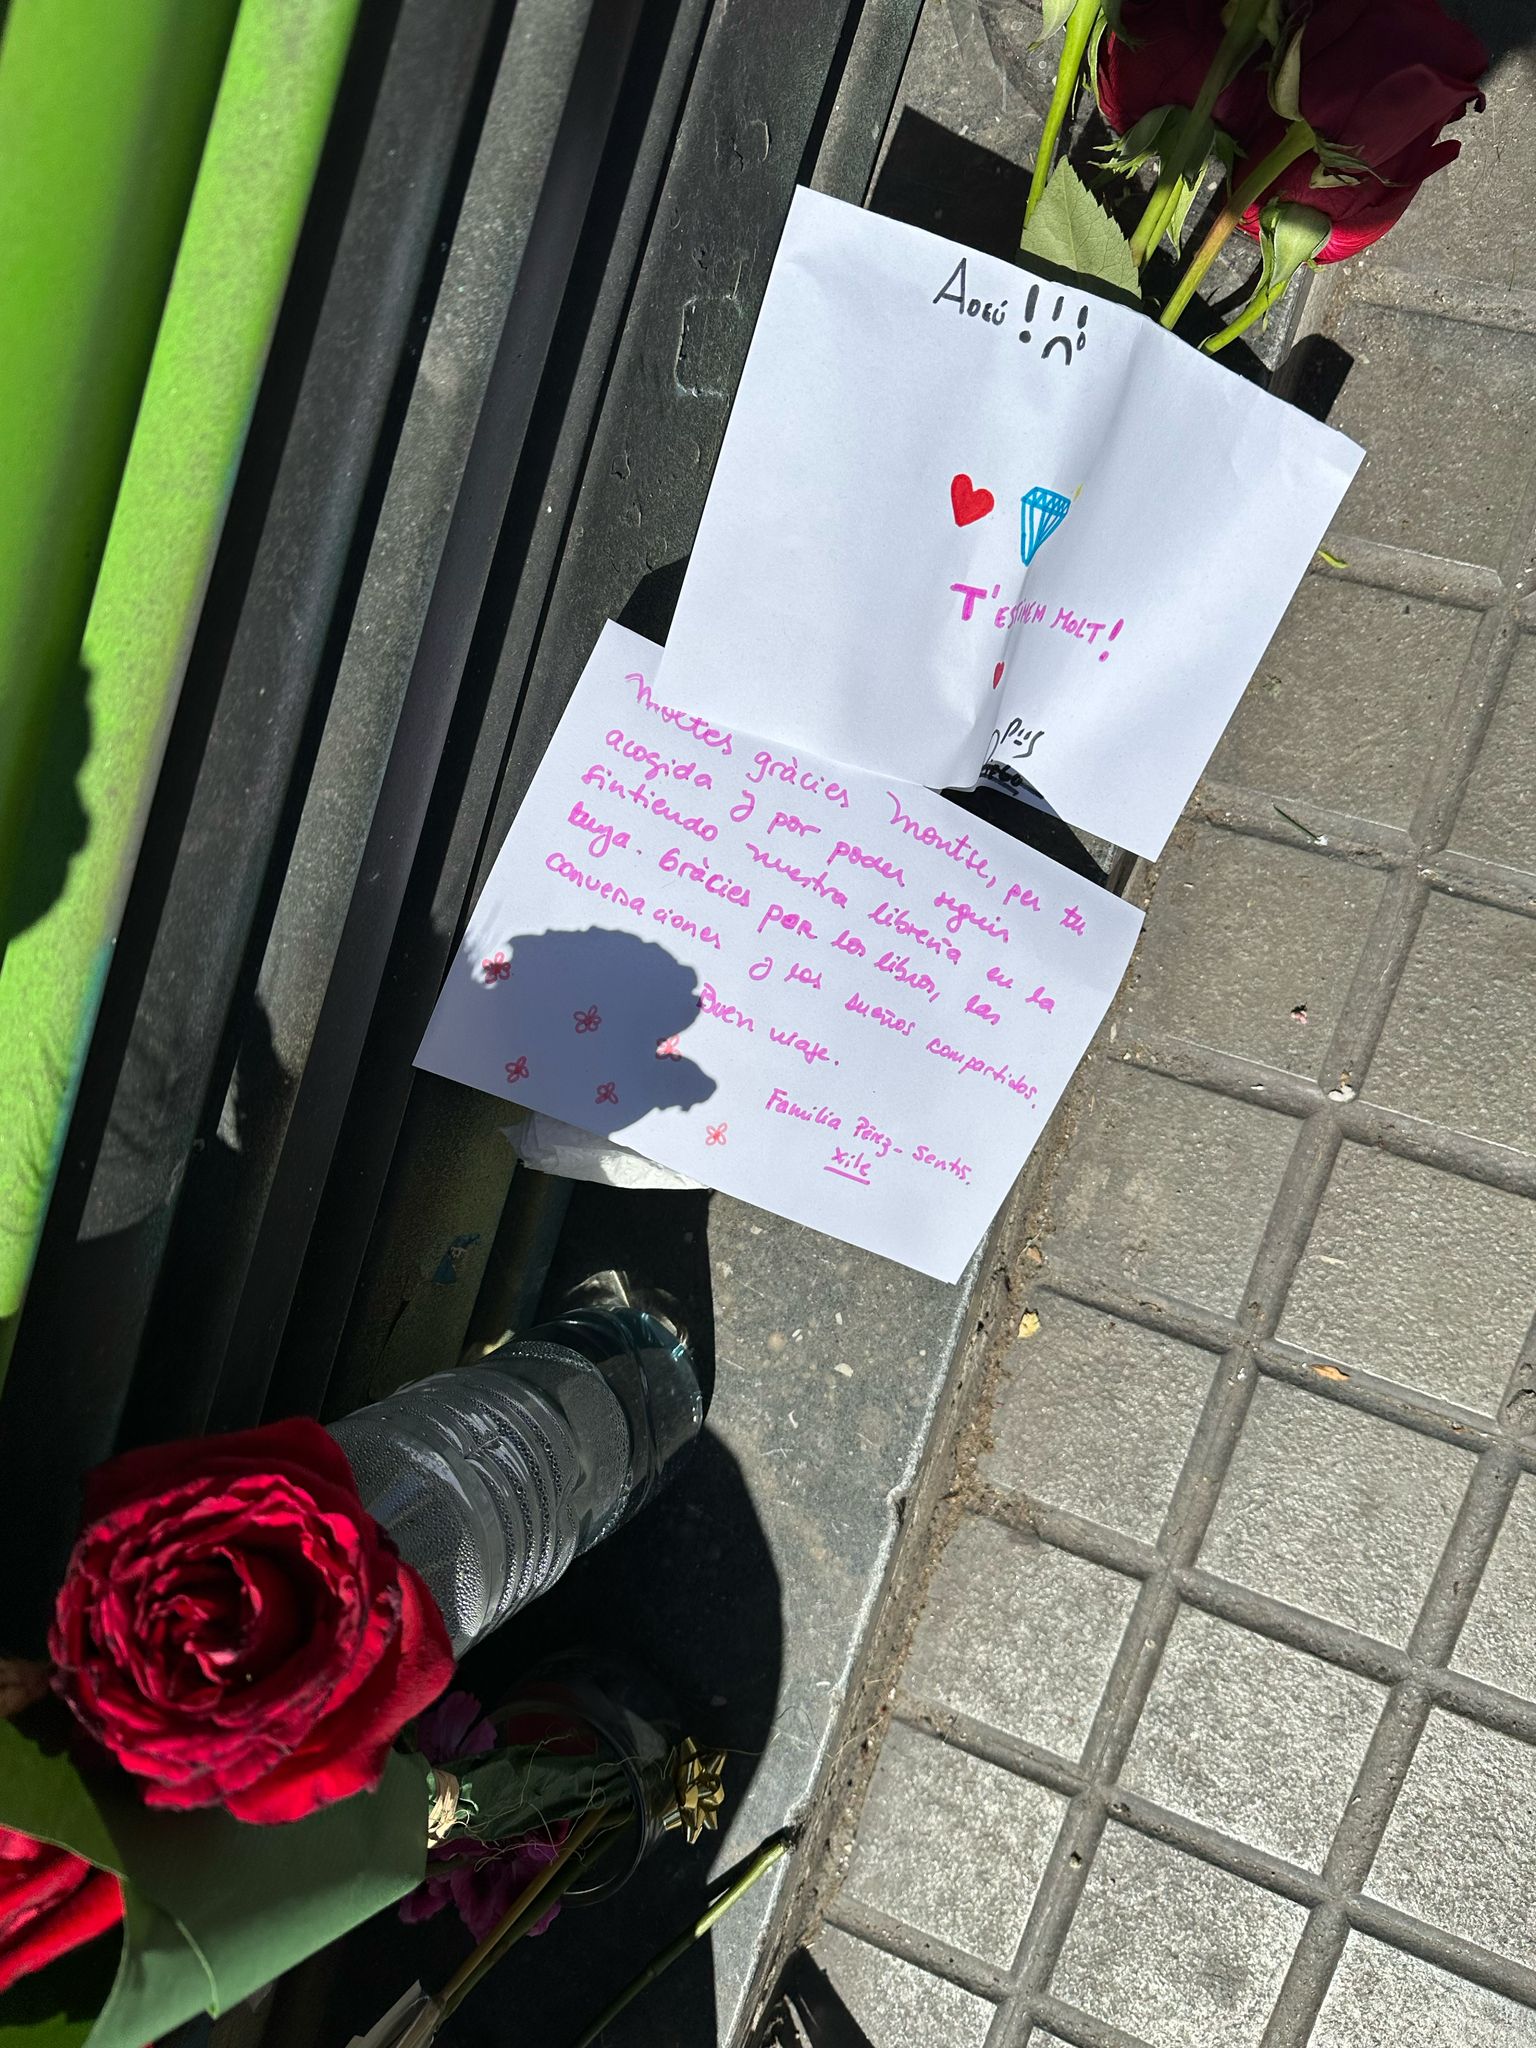 ADEÚ !!!
T'ESTIMEM MOLT!
Moltes gràcies Montse, per tu
acogida y por poder seguir
sintiendo nuestra librería en la
tuya. Gràcies por los libros, las
conversaciones y los sueños compartidos.
Buen viaje.
Familia Pérez-Sentís.